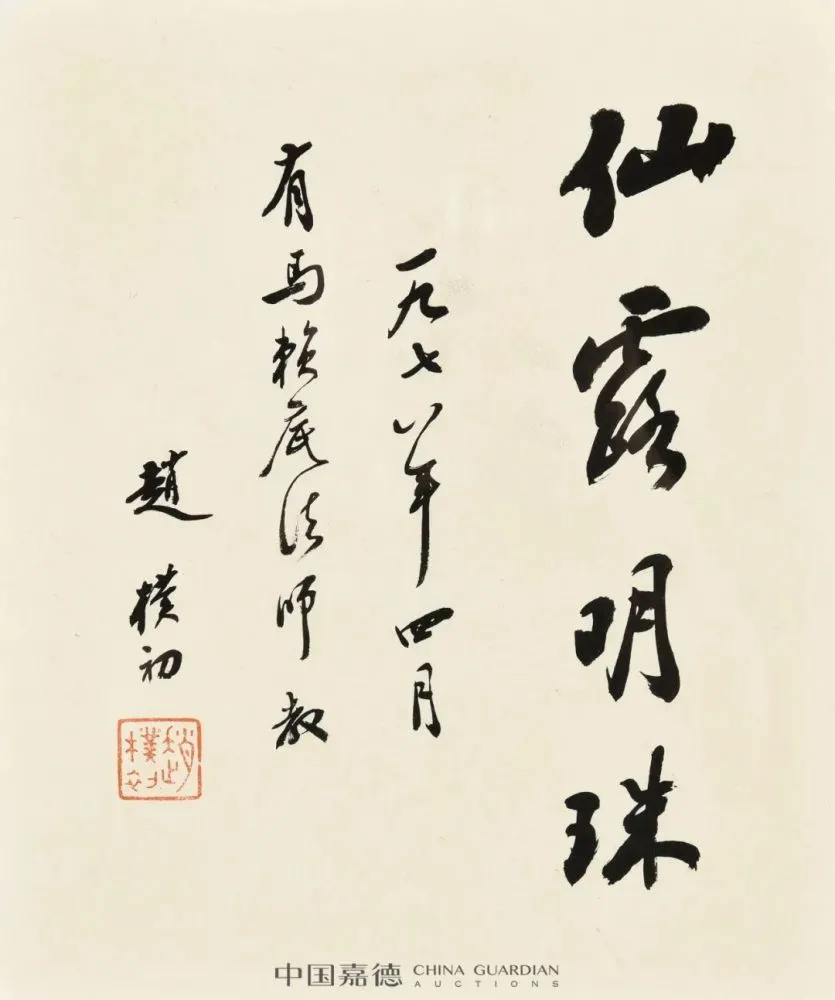 仙露明珠
一九七八年四月
有馬賴底法师教
趙樸初
趙樸初
中国嘉德 CHINA GUARDIAN
AUCTIONS